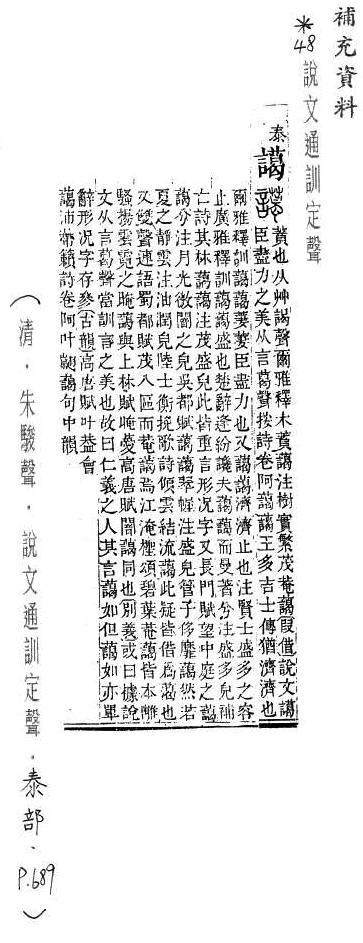 補充資料
*48 說文通訓定聲
泰 藹 蕡也从艸謁聲爾雅釋木蕡藹注樹實繁茂菴藹叚借說文藹
臣盡力之美从言葛聲按詩卷阿藹藹王多吉士傳猶濟濟也
爾雅釋訓藹藹萋萋臣盡力也又藹藹濟濟止也注賢士盛多之容
止廣雅釋訓藹藹盛也楚辭逢紛讒夫藹藹而曼著兮注盛多皃補
亡詩其林藹藹注茂盛皃此皆重言形况字又長門賦望中庭之藹
藹兮注月光微闇之皃吳都賦藹藹翠幄注盛皃管子侈靡藹然若
夏之靜雲注油潤皃陸士衡挽歌詩傾雲結流藹此疑皆借爲藹也
又雙聲連語蜀都賦茂八區而菴藹焉江淹檉頌碧葉菴藹皆本離
騷揚雲霓之晻藹與上林賦唵薆高唐賦闇藹同也別義或曰據說
文从言葛聲當訓言之美也故曰仁義之人其言藹如但藹如亦單
辭形况字存參古韻高唐賦叶蓋會
藹沛 籟詩卷阿叶 藹句中韻
（清．朱駿聲．說文通訓定聲．泰部．P.689）